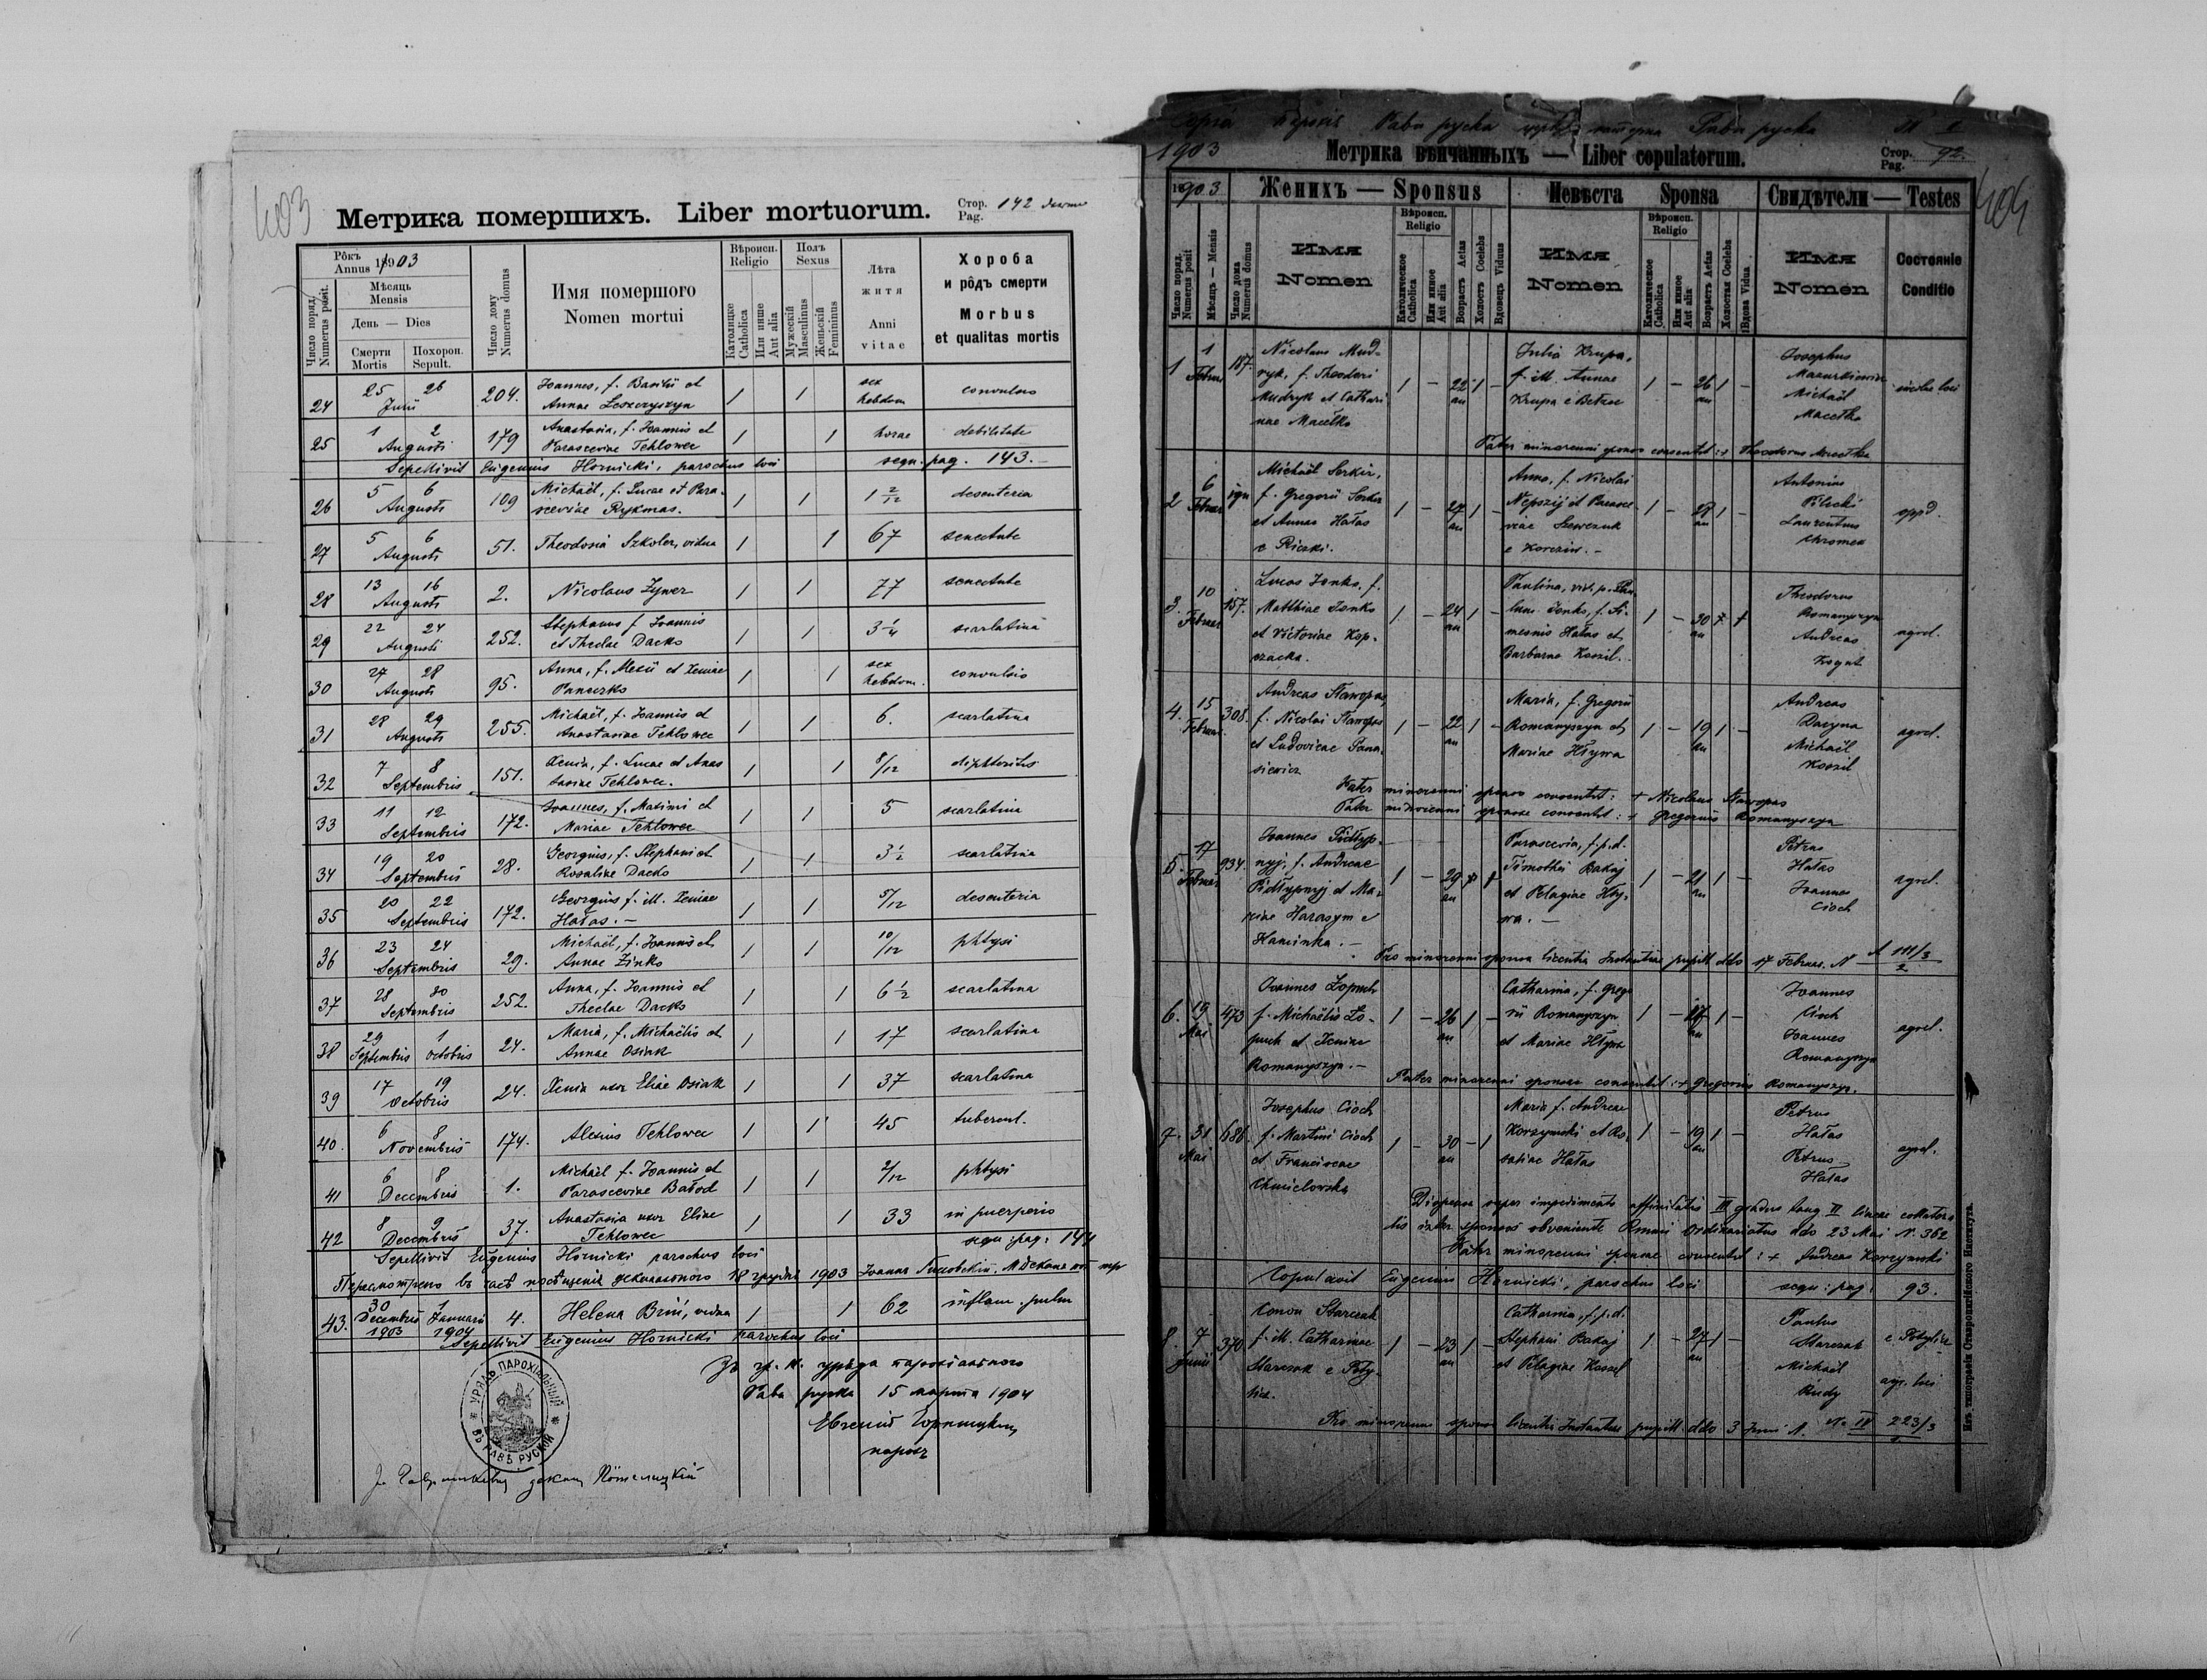 403
Метрика помершихъ. Liber mortuorum.
Стор. Pag. 142
Рôкъ Annus 1903
Число поряд. Numerus posit.
Мѣсяць Mensis
День — Dies
Смерти Mortis
Похорон. Sepult.
Число дому Numerus domus
Имя помершого Nomen mortui
Вѣроисп. Religio
Католицке Catholica
Или нише Aut alia
Полъ Sexus
Мужескій Masculinus
Женьскій Femininus
Лѣта житя Anni vitae
Хороба и рôдъ смерти Morbus et qualitas mortis
24 25 26 Julii 204. Joannes, f. Basilii et Annae Leszczyszyn 1 1 sex hebdom convulsio
25 1 2 Augusti 179 Anastasia, f. Joannis et Parasceviae Tehlowec 1 1 horae debilitate
Sepelivit Eugenius Hornicki, parochus loci sequ. pag. 143.
26 5 6 Augusti 109 Michaël, f. Lucae et Parasceviae Rykmas. 1 1 1 2/12 desenteria
27 5 6 Augusti 51. Theodosia Szkoler, vidua 1 1 67 senectute
28 13 16 Augusti 2. Nicolaus Żywer 1 1 77 senectute
29 22 24 Augusti 252. Stephanus f. Joannis et Theclae Dacko 1 1 3 1/4 scarlatina
30 27 28 Augusti 95. Anna, f. Alexii et Xeniae Panaszko 1 1 sex hebdom. convulsio
31 28 29 Augusti 255. Michaël, f. Joannis et Anastasiae Tehlowec 1 1 6. scarlatina
32 7 8 Septembris 151. Xenia, f. Lucae et Anastasiae Tehlowec. 1 1 8/12 diphteritis
33 11 12 Septembris 172. Joannes, f. Maximi et Mariae Tehlowec 1 1 5 scarlatina
34 19 20 Septembris 28. Georgius, f. Stephani et Rosaliae Dacko 1 1 3 1/2 scarlatina
35 20 22 Septembris 172. Georgius f. ill. Xeniae Hałas. — 1 1 5/12 desenteria
36 23 24 Septembris 29. Michaël, f. Joannis et Annae Zinko 1 1 10/12 phtysi
37 28 30 Septembris 252. Anna, f. Joannis et Theclae Dacko 1 1 6 1/2 scarlatina
38 29 Septembris 1 Octobris 24. Maria, f. Michaëlis et Annae Osiak 1 1 17 scarlatina
39 17 19 Octobris 24. Xenia uxor Eliae Osiak 1 1 37 scarlatina
40. 6 8 Novembris 174. Alexius Tehlowec 1 1 45 tubercul.
41 6 8 Decembris 1. Michaël f. Joannis et Parasceviae Bałod 1 1 2/12 phtysi
42 8 9 Decembris 37. Anastasia uxor Eliae Tehlowec 1 1 33 in puerperio
sequ: pag: 144
Sepelivit Eugenius Hornicki parochus loci
Пересмотрено въ часѣ посѣщенія деканального 18 грудня 1903
43. 30 Decembris 1903 1 Januarii 1904 4. Helena Brii, vidua 1 1 62 inflam. pulm
Sepelivit Eugenius Hornicki parochus loci
Зъ гр. к. уряда парохіального
Рава руска 15 марта 1904
Евгеній Горницкій
парох
УРЯДЪ ПАРОХІАЛЬНЫЙ ВЪ РАВѢ РУСКОЙ
404
Рава руска Рава руска
1903
Метрика вѣнчанныхъ — Liber copulatorum.
Стор. Pag. 92.
1903
Женихъ — Sponsus
Невѣста Sponsa
Свидѣтели — Testes
Число поряд. Numerus posit
Мѣсяць — Mensis
Число дома Numerus domus
Имя Nomen
Вѣроисп. Religio
Католическое Catholica
Или иное Aut alia
Возрастъ Aetas
Холостъ Coelebs
Вдовецъ Viduus
Имя Nomen
Вѣроисп. Religio
Католическое Catholica
Или иное Aut alia
Возрастъ Aetas
Холостая Coelebs
Вдова Vidua
Имя Nomen
Состояніе Conditio
1 1 Februar 187. Nicolaus Mudryk, f. Theodori Mudryk et Catharinae Macełko 1 — 22 an 1 — Julia Krupa, f. ill. Annae Krupa e Betzec 1 — 26 an 1 — Josephus Mazurkiewicz Michaël Macełko incolae loci
Pater minorenni sponso consentit: + Theodorus
2 6 Februar ign Michaël Serkiz, f. Gregorii Serkiz et Annae Hałas e Riczki. 1 — 27 an 1 — Anna, f. Nicolai Nepszij et Parasceviae Szewczuk e Korcziw. — 1 — 28 an 1 — Antonius Pilicki Laurentius Chromen oppd.
3. 10 Februar 157. Lucas Jonko, f. Matthiae Jonko et Victoriae Kopczacka. 1 — 24 an 1 — Paulina, vid. p. Jonko, f. Simeonis Hałas et Barbarae Koszil. 1 — 30 an Theodorus Romanyszyn Andreas agrd.
4. 15 Februar 308. Andreas Stawropas, f. Nicolai Stawropas et Ludovicae Panasiewicz 1 — 22 an 1 — Maria, f. Gregorii Romanyszyn et Mariae Hływa 1 — 19 an 1 — Andreas Daczyna Michaël Koszil agrd.
Pater minorenni sponso consentit: + Nicolaus Stawropas
Pater minorenni sponsae consentit: + Gregorius Romanyszyn
5. 17 Februar 934. Joannes Pidłypnyj, f. Andreae Pidłypnyj et Mariae Harasym e Kaminka. — 1 — 29 an Parascevia, f. p. d. Timothei Bakaj et Pelagiae Hływa. — 1 — 21 an 1 — Petrus Hałas Joannes Cioch agrd.
Pro minorenni sponsa licentia Instantiae pupill. ddo 17 Februar. N A 111/3 2
6. 19 Mai 473 Joannes Łopuch f. Michaëlis Łopuch et Xeniae Romanyszyn. — 1 — 26 an 1 — Catharina, f. Gregorii Romanyszyn et Mariae Hływa 1 — 27 an 1 — Joannes Cioch Joannes Romanyszyn agrd.
Pater minorenni sponsae consentit: + Gregorius Romanyszyn.
7. 31 Mai 686. Josephus Cioch f. Martini Cioch et Franciscae Chmielowska 1 — 30 an — 1 Maria f. Andreae Korzynski et Rosaliae Hałas 1 — 19 an 1 — Petrus Hałas Petrus Hałas agrd.
Dispensa super impedimento affinitatis III gradus tang II lineae collateralis inter sponsos obveniente Rmmi Ordinariatus ddo 23 Mai N. 362
Pater minorenni sponsae consentit: + Andreas Korzynski
Copulavit Eugenius Hornicki, parochus loci sequ: pag: 93.
8. 7 Junii 370 Conon Starczak f. ill. Catharinae Starczak e Potylicz. 1 — 23 an 1 — Catharina, f. p. d. Stephani Bakaj et Pelagiae Koszel 1 — 27 an 1 — Paulus Starczak Michaël Rudy e Potylicz agr. loci
Pro minorenni sponso licentia Instantiae pupill. ddo 3 Junii N. IV 223/3
Изъ типографіи Ставропигійского Института.